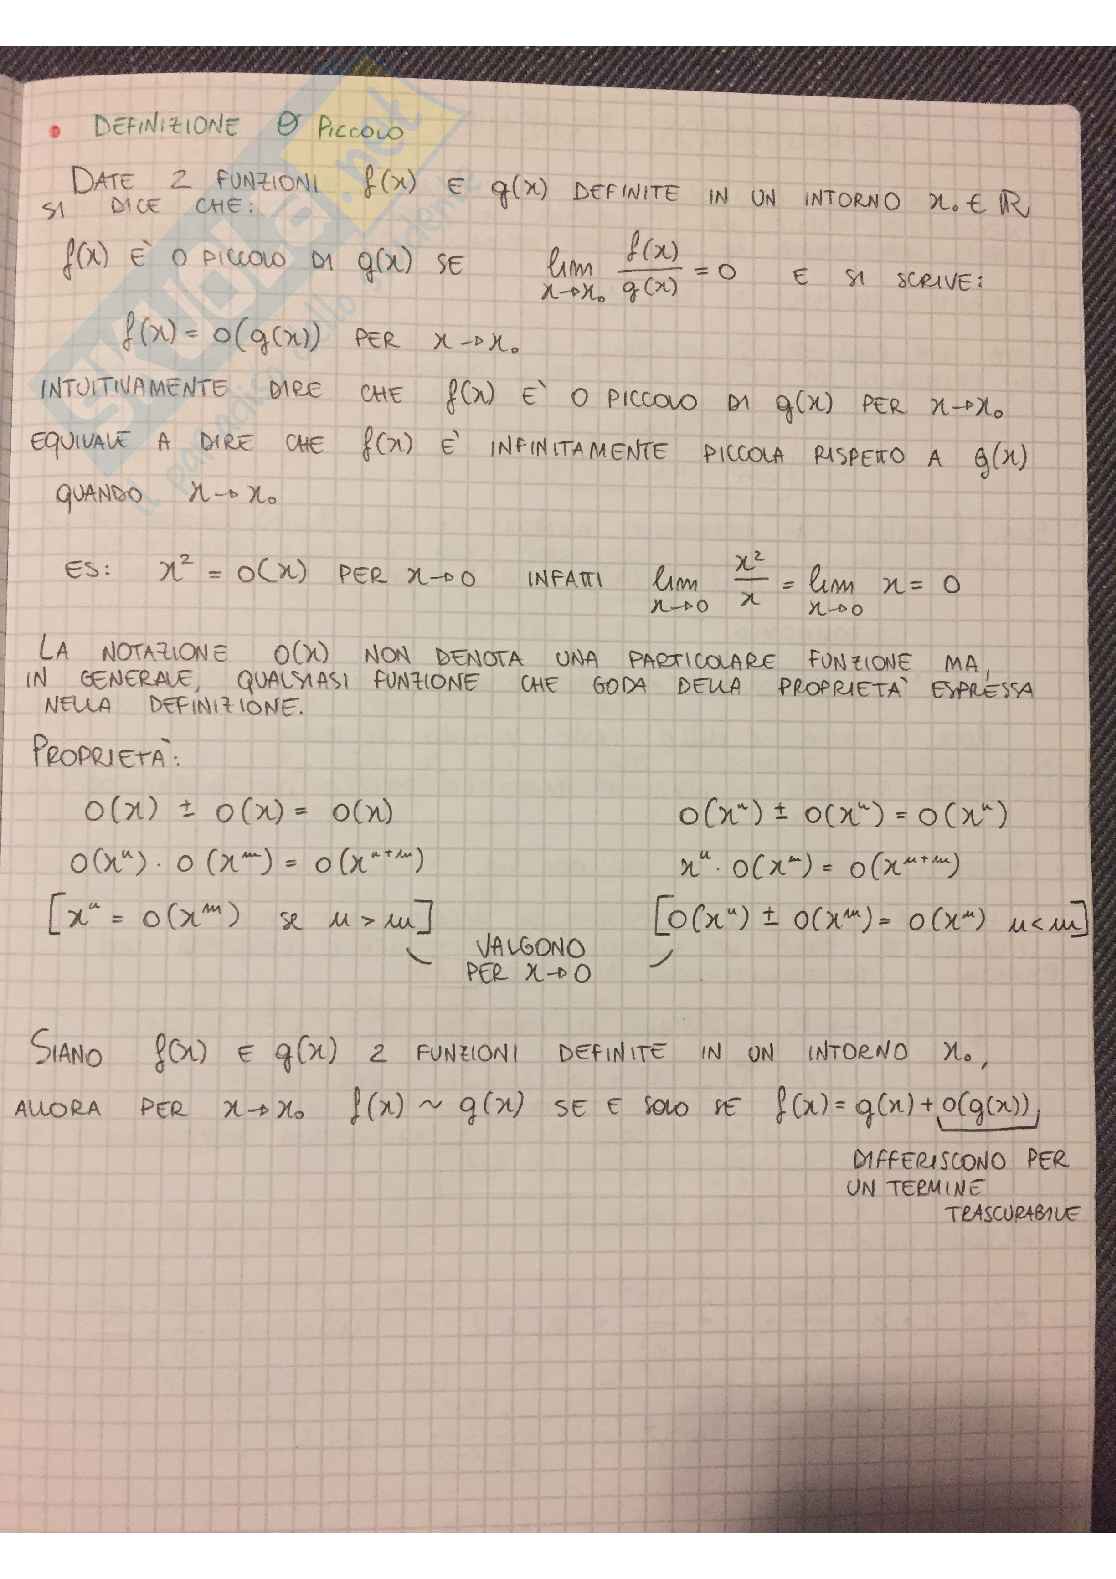 • DEFINIZIONE O PICCOLO
DATE 2 FUNZIONI f(x) E g(x) DEFINITE IN UN INTORNO x₀ ∈ ℝ
SI DICE CHE:
f(x) È O PICCOLO DI g(x) SE lim x→x₀ f(x)/g(x) = 0 E SI SCRIVE:
f(x) = o(g(x)) PER x→x₀
INTUITIVAMENTE DIRE CHE f(x) È O PICCOLO DI g(x) PER x→x₀
EQUIVALE A DIRE CHE f(x) È INFINITAMENTE PICCOLA RISPETTO A g(x)
QUANDO x→x₀
ES: x² = o(x) PER x→0 INFATTI lim x→0 x²/x = lim x→0 x = 0
LA NOTAZIONE o(x) NON DENOTA UNA PARTICOLARE FUNZIONE MA,
IN GENERALE, QUALSIASI FUNZIONE CHE GODA DELLA PROPRIETÀ ESPRESSA
NELLA DEFINIZIONE.
PROPRIETÀ:
o(x) ± o(x) = o(x) o(xⁿ) ± o(xⁿ) = o(xⁿ)
o(xⁿ) · o(xᵐ) = o(xⁿ⁺ᵐ) xⁿ · o(xᵐ) = o(xⁿ⁺ᵐ)
[xⁿ = o(xᵐ) se n > m] [o(xⁿ) ± o(xᵐ) = o(xⁿ) n < m]
VALGONO
PER x→0
SIANO f(x) E g(x) 2 FUNZIONI DEFINITE IN UN INTORNO x₀,
ALLORA PER x→x₀ f(x) ~ g(x) SE E SOLO SE f(x) = g(x) + o(g(x))
DIFFERISCONO PER
UN TERMINE
TRASCURABILE